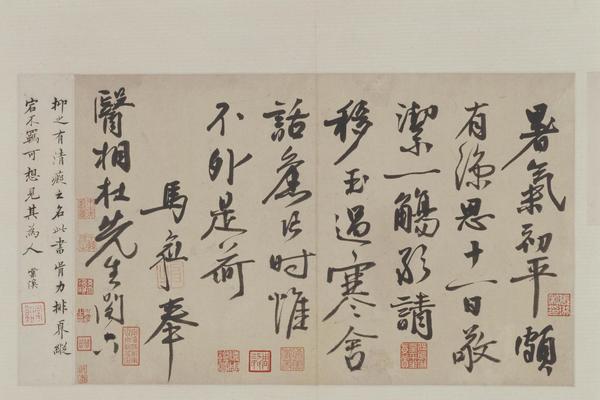 暑氣初平頗
有涼思十一日敬
潔一觴敢請
移玉過寒舍
話舊片時惟
不外是荷
馬愈奉
醫相杜先生閣下
抑之有清癡之名此書骨力排奡
宕不羈可想見其為人 雲溪